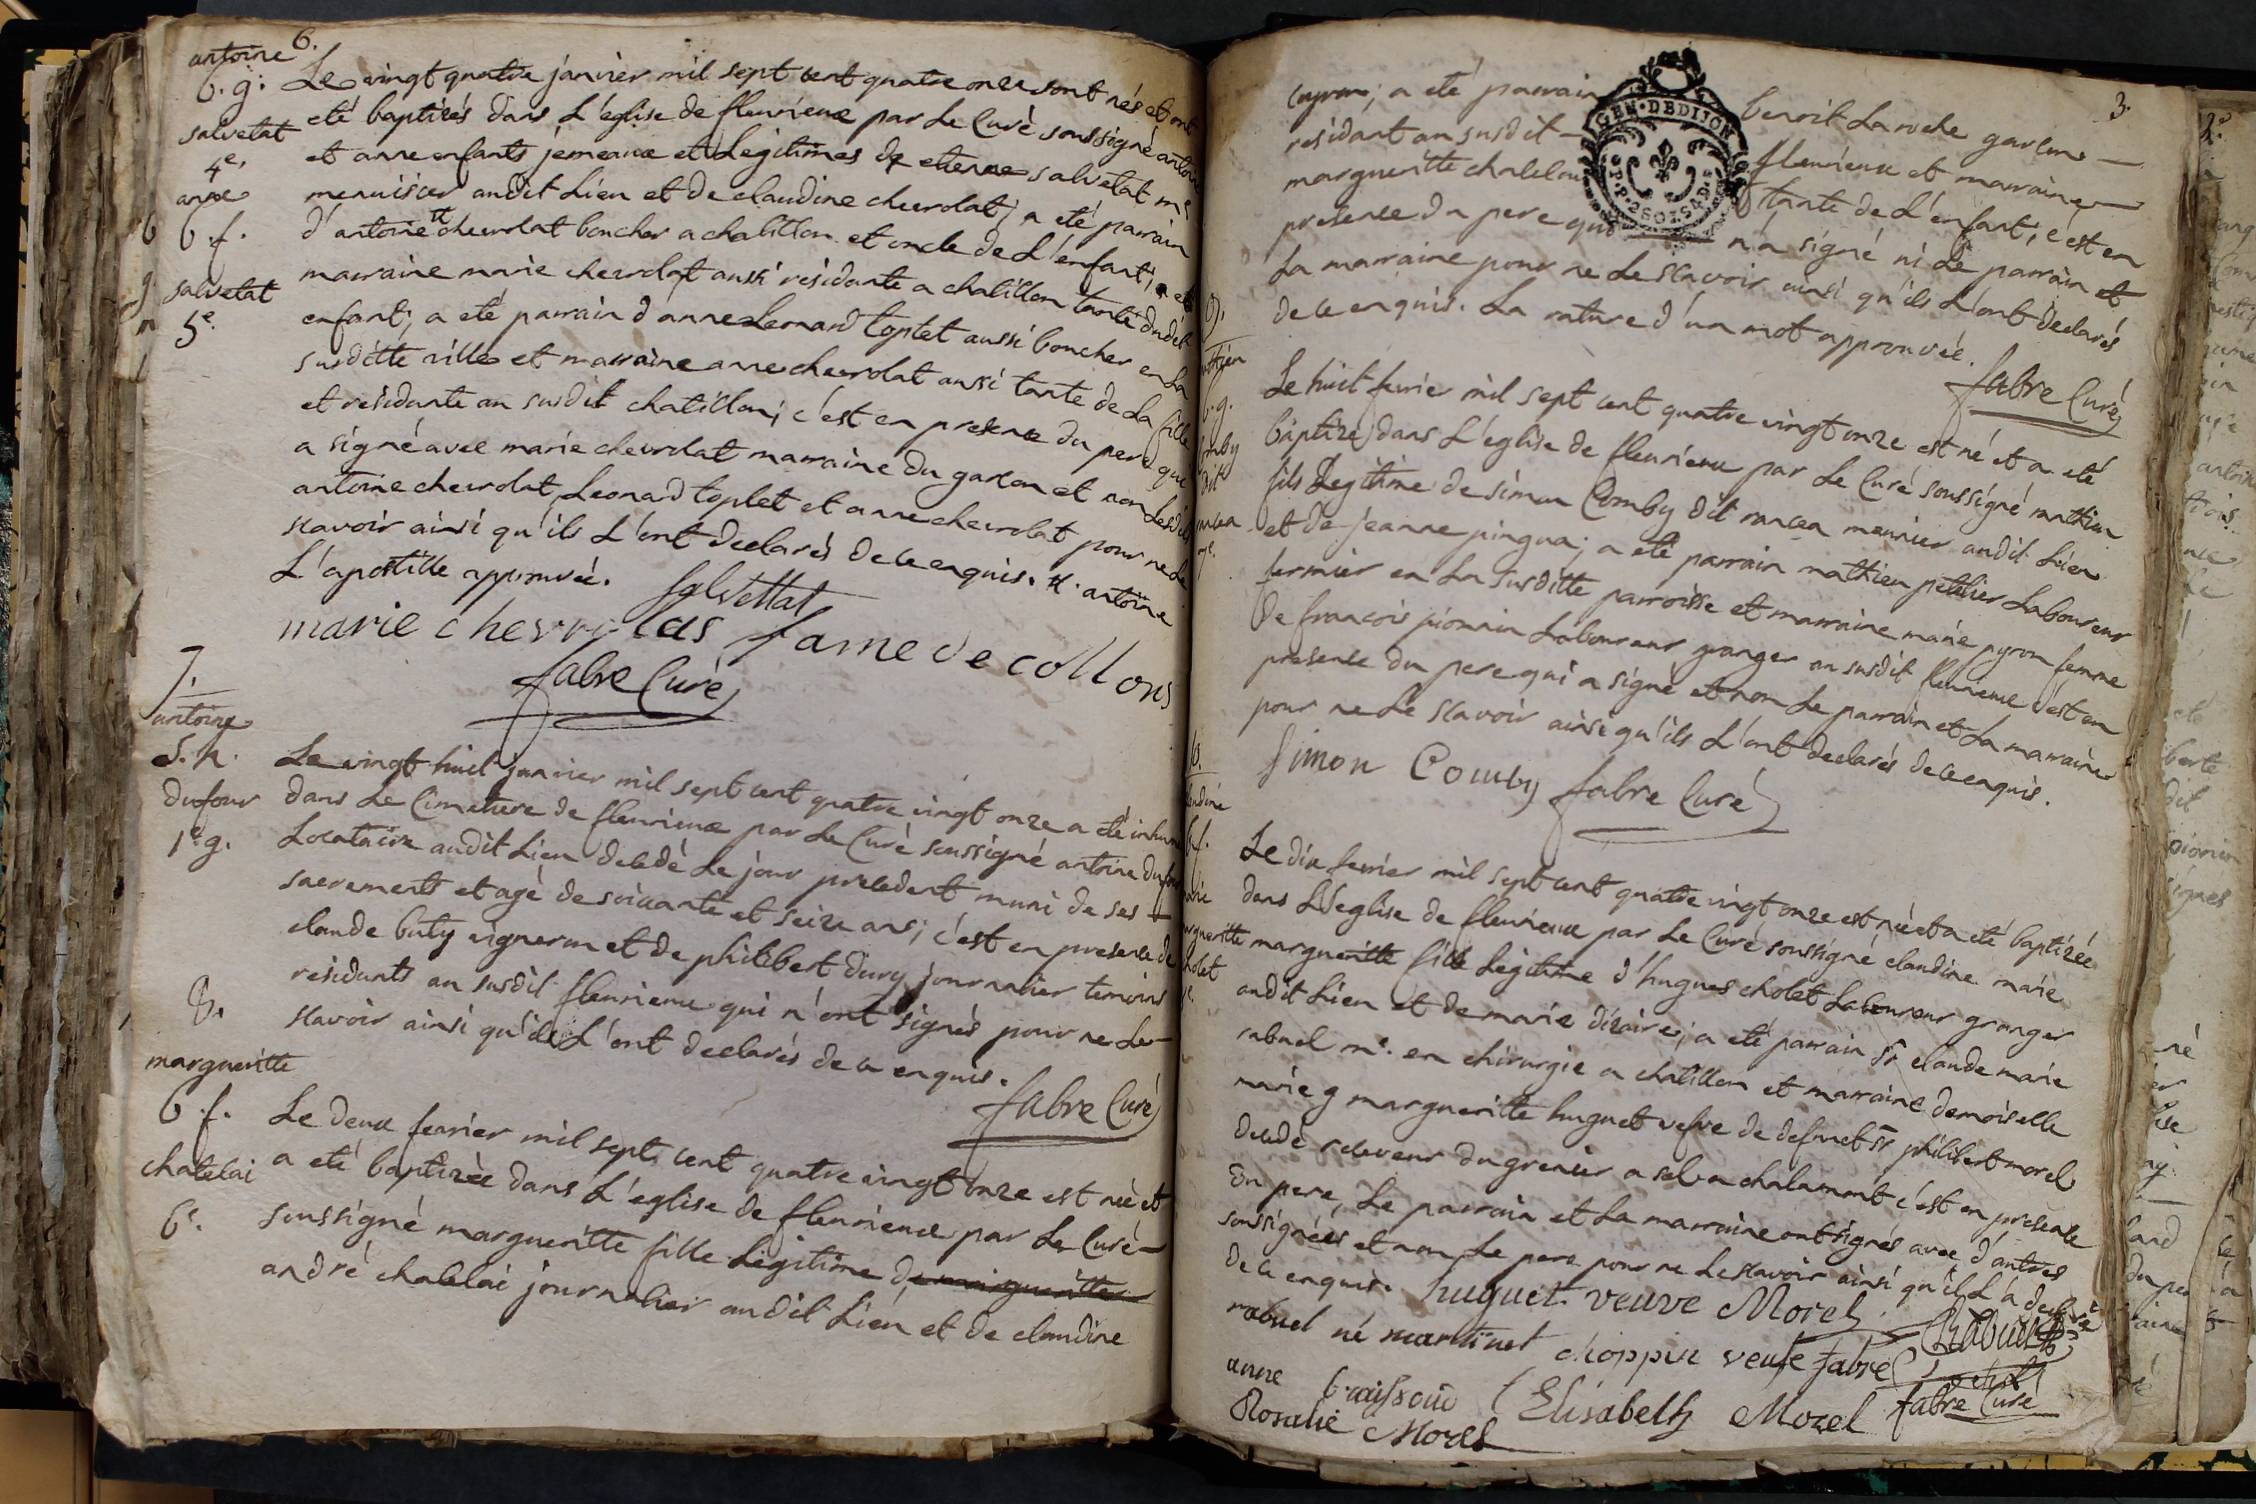 6.
antoine
b. g.
salvetat
4e.
anne
b. f.
salvetat
5e.
Le vingt quatre janvier mil sept cent quatre onze sont nés et ont
eté baptisés dans L'eglise de fleurieux par Le Curé soussigné antoine
et anne enfants jemeaux et Legitimes de etienne salvetat me.
menuisier audit Lieu et de claudine chevrolat; a eté parrain
d'antoine # chevrolat boucher a chatillon et oncle de L'enfant; a eté
marraine marie chevrolat aussi residante a chatillon tante dudit
enfant; a eté parrain d'anne Leonard toplet aussi boucher en La
susditte ville et marraine anne chevrolat aussi tante de La fille
et residante au susdit chatillon; c'est en presence du pere qui
a signé avec marie chevrolat marraine du garcon et non Lesdits
antoine chevrolat, Leonard toplet et anne chevrolat pour ne Le
scavoir ainsi qu'ils L'ont declarés de ce enquis. #. antoine
L'apostille approuvée. Salvettat
marie chevrolas fame de collons
fabre Curé
7.
antoine
S. h.
dufour
1e g.
Le vingt huit janvier mil sept cent quatre vingt onze a eté inhumé
dans Le Cimetiere de fleurieux par Le Curé soussigné antoine dufour
Locataire audit Lieu decedé Le jour precedent muni de ses
sacrements et agé de soixante et seize ans; c'est en presence de
claude buty vigneron et de philibert dury journalier temoins
residants au susdit fleurieux qui n'ont signés pour ne Le
scavoir ainsi qu'ils L'ont declarés de ce enquis.
fabre Curé
8.
margueritte
b. f.
chatelai
6e.
Le deux fevrier mil sept cent quatre vingt onze est née et
a eté baptisée dans L'eglise de fleurieux par Le Curé
soussigné margueritte fille Legitime de margueritte
andré chatelai journalier audit Lieu et de claudine
3.
a eté parrain benoit Laroche garcon
residant au susdit fleurieux et marraine
margueritte chatelai tante de L'enfant; c'est en
presence du pere qui n'a signé ni Le parrain et
La marraine pour ne Le scavoir ainsi qu'ils L'ont declarés
de ce enquis. La rature d'un mot approuvée.
fabre Curé
GEN. DE DIJON
9.
b. g.
Le huit fevrier mil sept cent quatre vingt onze est né et a eté
baptizé dans L'eglise de fleurieux par Le Curé soussigné mathieu
fils Legitime de simon Comby dit mncea meunier audit Lieu
et de jeanne pingua; a eté parrain mathieu petelier Laboureur
fermier en La susditte parroisse et marraine marie pyron femme
de francois pionnin Laboureur granger au susdit fleurieux c'est en
presence du pere qui a signé et non Le parrain et La marraine
pour ne Le scavoir ainsi qu'ils L'ont declarés de ce enquis.
Simon Comby fabre Curé
10.
Le dix fevrier mil sept cent quatre vingt onze est née et a eté baptizée
dans L'eglise de fleurieux par Le Curé soussigné claudine marie
margueritte fille Legitime d'hugues cholet Laboureur granger
audit Lieu et de marie dizaire; a eté parrain Sr claude marie
rabuel me. en chirurgie a chatillon et marraine demoiselle
marie g margueritte huguet vefve de defunct Sr philibert morel
decedé receveur du grenier a sel a chalamont c'est en presence
du pere, Le parrain et La marraine ont signés avec d'autres
soussignées et non Le pere pour ne Le scavoir ainsi qu'il L'a declaré
de ce enquis. huguet veuve Morel Rabuel
rabuel né martinet choppin veufe fabre
anne Elisabeth Morel fabre Curé
Rosalie Morel